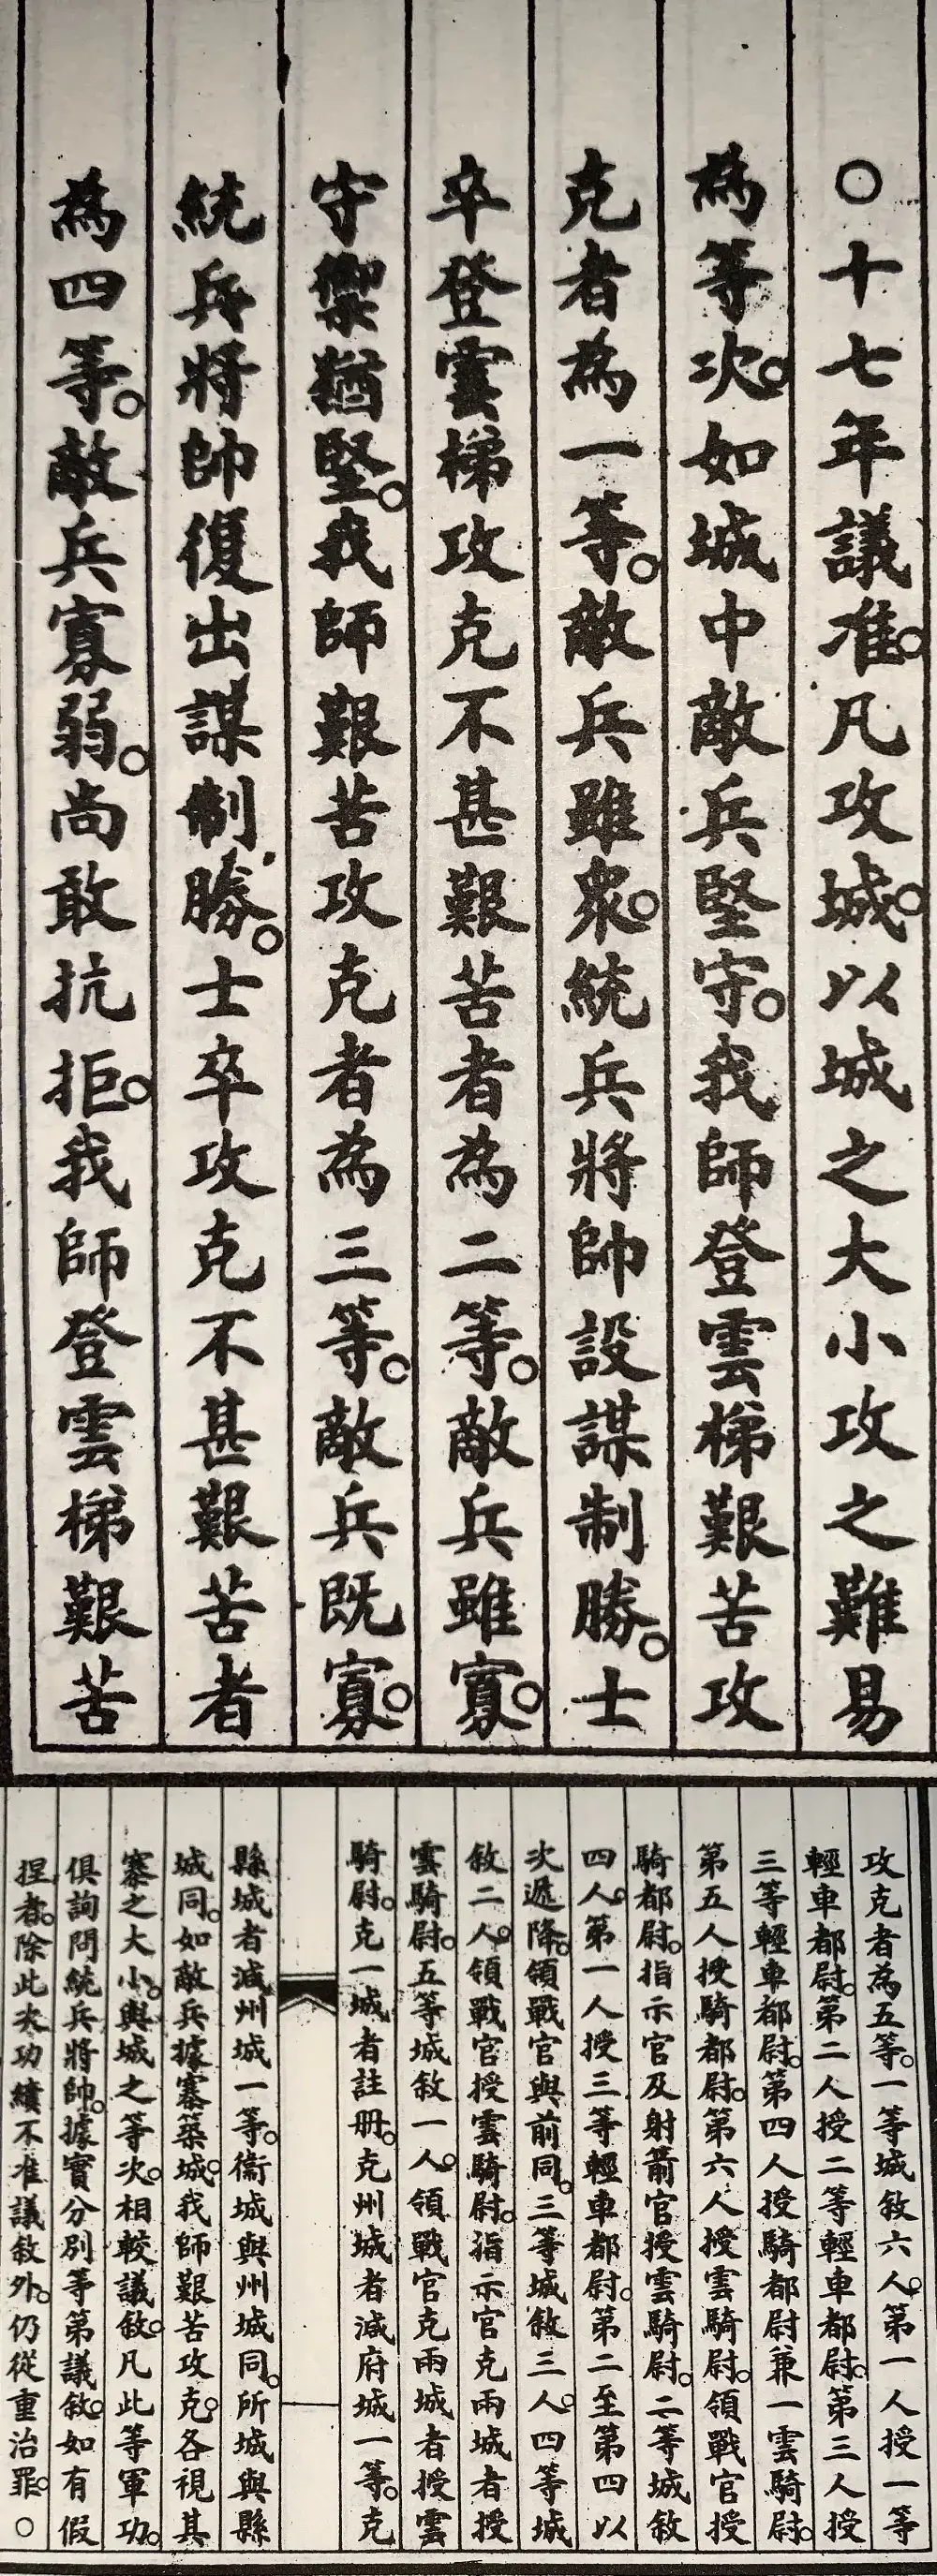 〇十七年議准。凡攻城。以城之大小攻之難易
為等次。如城中敵兵堅守。我師登雲梯艱苦攻
克者為一等。敵兵雖衆。統兵將帥設謀制勝。士
卒登雲梯攻克不甚艱苦者為二等。敵兵雖寡。
守禦猶堅。我師艱苦攻克者為三等。敵兵既寡。
統兵將帥復出謀制勝。士卒攻克不甚艱苦者
為四等。敵兵寡弱。尚敢抗拒。我師登雲梯艱苦
攻克者為五等。一等城敘六人。第一人授一等
輕車都尉。第二人授二等輕車都尉。第三人授
三等輕車都尉。第四人授騎都尉兼一雲騎尉。
第五人授騎都尉。第六人授雲騎尉。領戰官授
騎都尉。指示官及射箭官授雲騎尉。二等城敘
四人。第一人授三等輕車都尉。第二至第四以
次遞降。領戰官與前同。三等城敘三人。四等城
敘二人。領戰官授雲騎尉。指示官克兩城者授
雲騎尉。五等城敘一人。領戰官克兩城者授雲
騎尉。克一城者註册。克州城者減府城一等。克
縣城者減州城一等。衞城與州城同。所城與縣
城同。如敵兵據寨築城。我師艱苦攻克。各視其
寨之大小。與城之等次。相較議敘。凡此等軍功。
俱詢問統兵將帥。據實分別等第議敘。如有假
捏者。除此次功績不准議敘外。仍從重治罪。〇